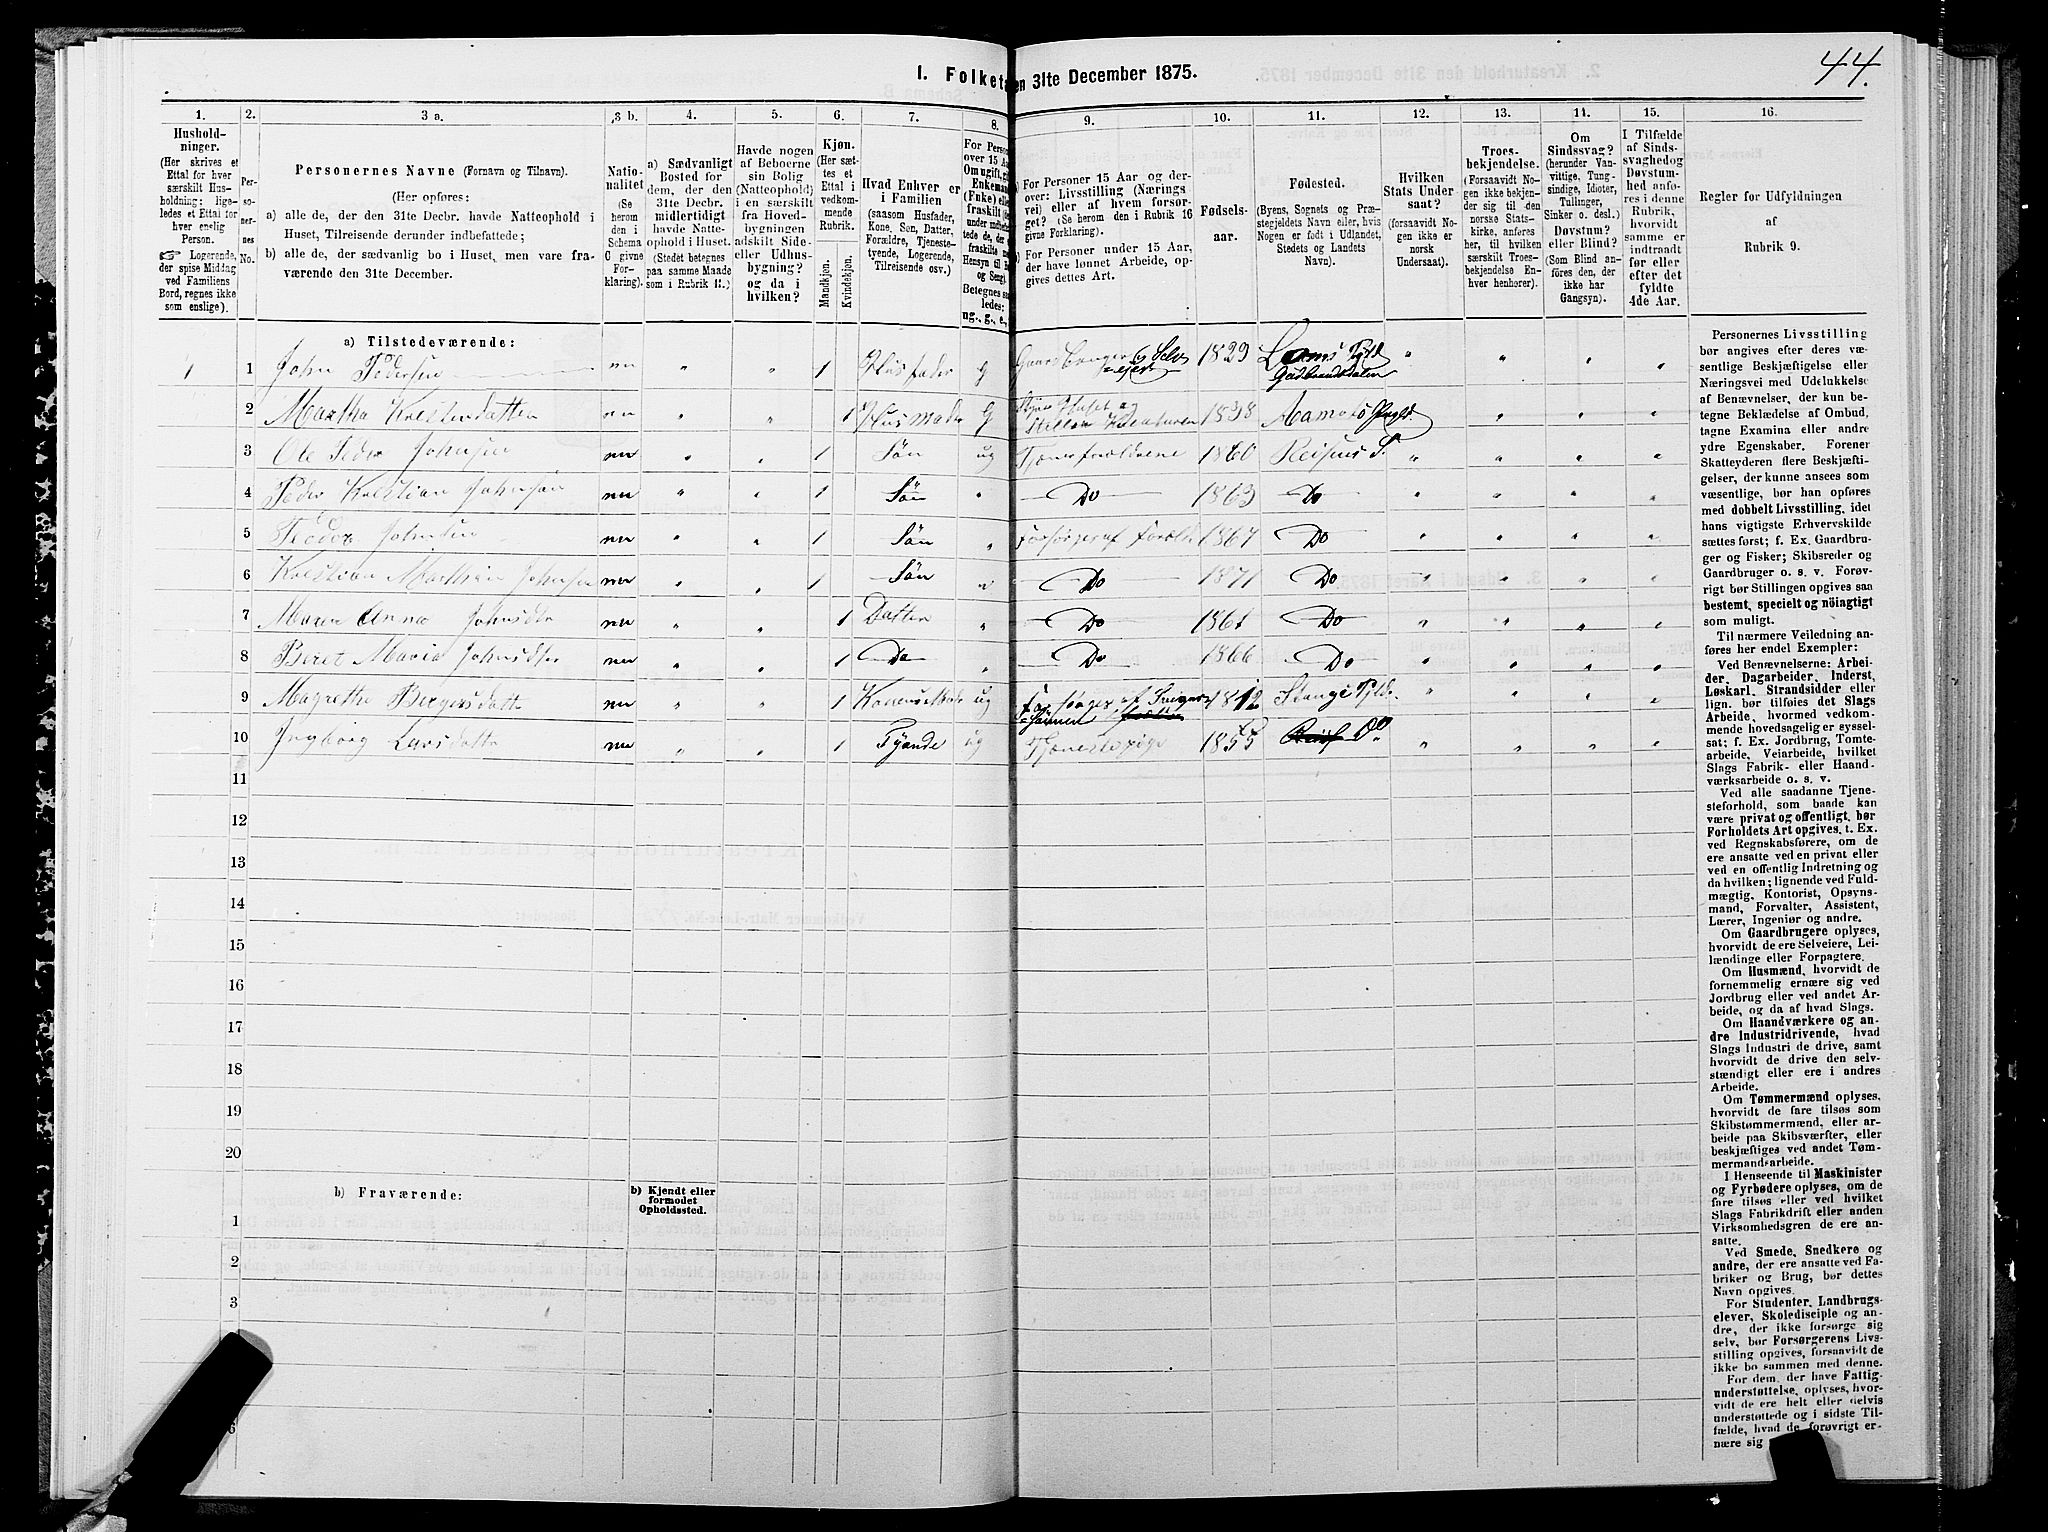 44.
I. Folketa en 31te December 1875.
1. 2. 3 a. 3 b. 4. 5. 6. 7. 8. 9. 10. 11. 12. 13. 14. 15. 16.
Hushold-
ninger.
(Her skrives et
Ettal for hver
særskilt Hus-
holdning: lige-
ledes et Ettal for
hver enelig
Person.
☞ Logerende,
der spise Middag
ved Familiens
Bord, regnes ikke
som enslige).
Per-
so-
ner-
nes
No.
Personernes Navne (Fornavn og Tilnavn).
(Her opføres:
a) alle de, der den 31te Decbr. havde Natteophold i
Huset, Tilreisende derunder indbefattede;
b) alle de, der sædvanlig bo i Huset, men vare fra-
værende den 31te December.
Natio-
nalitet
(Se
herom
den i
Schema
C givne
For-
klaring).
a) Sædvanligt
Bosted for
dem, der den
31te Decbr.
midlertidigt
havde Natte-
ophold i Huset.
(Stedet betegnes
paa samme Maade
som i Rubrik 11.)
Havde nogen
af Beboerne
sin Bolig
(Natteophold)
i en særskilt
fra Hoved-
bygningen
adskilt Side-
eller Udhus-
bygning?
og da i
hvilken?
Kjøn.
(Her sæt-
tes et
Ettal i
vedkom-
mende
Rubrik.
Mandkjøn.
Kvindekjøn.
Hvad Enhver er
i Familien
(saasom Husfader,
Kone, Søn, Datter,
Forældre, Tjeneste-
tyende, Logerende,
Tilreisende osv.)
For Perso
over 15 Aa
Om ugift, gi
Enkeman
(Enke) elle
fraskilt (fo
Betegnes saa
ledes:
ug., g., e.,
For Personer 15 Aar og der-
over: Livsstilling (Nærings
vei) eller af hvem forsør-
get? (Se herom den i Rubrik 16
givne Forklaring).
For Personer under 15 Aar,
der have lønnet Arbeide, op-
gives dettes Art.
Fødsels-
aar.
Fødested.
(Byens, Sognets og Præ-
stegjeldets Navn eller, hvis
Nogen er født i Udlandet,
Stedets og Landets
Navn).
Hvilken
Stats Under
saat?
(forsaavidt No-
gen ikke er
norsk
Undersaat).
Troes-
bekjendelse.
(Forsaavidt No-
gen ikke bekjen-
der sig til den
norske Stats-
kirke, anføres
her, til hvilken
særskilt Troes-
bekjendelse En-
hver henhører).
Om
Sindssvag?
(herunder Van-
vittige, Tung-
sindige, Idioter,
Tullinger,
Sinker o. desl.)
Døvstum?
eller Blind?
(Som Blind an-
føres den, der
ikke har
Gangsyn).
I Tilfælde
af Sinds-
svaghed og
Døvstum-
hed anfø-
res i denne
Rubrik,
hvorvidt
samme er
indtraadt
før eller
efter det
fyldte
4de Aar.
Regler for Udfyldningen
af
Rubrik 9.
a) Tilstedeværende:
1 1 John Pedersen nn " " 1 Husfader G Gaardbruger Selv eier 1829 Loms Pgld Gudbrandsdalen " " " "
2 Martha Kristensdatter nn " " 1 Husmoder G Huset og Kreaturen 1838 Aamots Pgld. " " "
3 Ole Peder Johnsen nn " " 1 Søn ug 1860 Reisens S. " " " "
4 Peder Kristian Johnsen nn " " 1 Søn " Do 1863 Do " " " "
5 Johnsen nn " " 1 Søn " Forsørges af Foreld 1867 Do " " " "
6 Kristian Mathias Johnsen nn " " 1 Søn " Do 1871 Do " " " "
7 Maren Anna Johnsdtr nn " " 1 Datter " Do 1861 Do " " " "
8 Beret Maria Johnsdtr nn " " 1 Do " Do 1866 Do " " " "
9 Magrethe Bergersdatter nn " " 1 Konens Moder ug Forsørges af Sviger Sønnen 1812 Stange Pgld. " " " "
10 Ingborg Larsdatter nn " " 1 Tyende ug Tjenestepige 1855 Do " " " "
11
12
13
14
15
16
17
18
19
20
b) Fraværende:
b) Kjendt eller
formodet
Opholdssted.
1
2
3
6
Personernes Livsstilling
bør angives efter deres væ-
sentlige Beskjæftigelse eller
Næringsvei med Udelukkelse
af Benævnelser, der kun be-
tegne Beklædelse af Ombud,
tagne Examina eller andre
ydre Egenskaber. Forener
Skatteyderen flere Beskjæfti-
gelser, der kunne ansees som
væsentlige, bør han opføres
med dobbelt Livsstilling, idet
hans vigtigste Erhvervskilde
sættes først; f. Ex. Gaardbru-
ger og Fisker; Skibsreder og
Gaardbruger o. s. v. Forøv-
rigt bør Stillingen opgives saa
bestemt, specielt og nöiagtigt
som muligt.
Til nærmere Veiledning an-
føres her endel Exempler:
Ved Benævnelserne: Arbei-
der, Dagarbeider, Inderst,
Løskarl, Strandsidder eller
lign. bør tilføies det Slags
Arbeide, hvormed vedkom-
mende hovedsagelig er syssel-
sat; f. Ex. Jordbrug, Tomte-
arbeide, Veiarbeide, hvilket
Slags Fabrik- eller Haand-
værksarbeide o. s. v.
Ved alle saadanne Tjene-
steforhold, som baade kan
være privat og offentligt, bør
Forholdets Art opgives. t. Ex.
ved Regnskabsførere, om de
ere ansatte ved en privat eller
ved en offentlig Indretning og
da hvilken; lignende ved Fuld-
mægtig, Kontorist, Opsyns-
mand, Forvalter, Assistent,
Lærer, Ingeniør og andre.
Om Gaardbrugere oplyses,
hvorvidt de ere Selveiere, Lei-
lændinge eller Forpagtere.
Om Husmænd, hvorvidt de
fornemmelig ernære sig ved
Jordbrug eller ved andet Ar-
beide, og da af hvad Slags.
Om Haandværkere og an-
dre Industridrivende, hvad
Slags Industri de drive, samt
hvorvidt de drive den selv-
stændigt eller ere i andres
Arbeide.
Om Tømmermænd oplyses,
hvorvidt de fare tilsøs som
Skibstømmermænd, eller ar-
beide paa Skibsværfter, eller
beskjæftiges ved andet Tøm-
mermandsarbeide.
I Henseende til Maskinister
og Fyrbødere oplyses, om de
fare tilsøs eller ved hvilket
Slags Fabrikdrift eller anden
Virksomhedsgren de ere an-
satte.
Ved Smede, Snedkere og
andre, der ere ansatte ved Fa-
briker og Brug, bør dettes
Navn opgives.
For Studenter, Landbrugs-
elever, Skoledisciple og an-
dre, der ikke forsørge sig
selv, bør Forsørgerens Livs-
stilling opgives, forsaavidt de
ikke bo sammen med denne.
For dem, der have Fattig-
understøttelse, oplyses, hvor-
vidt de ere helt eller delvis
understøttede og i sidste Til-
fælde, hvad de forøvrigt er-
nære sig